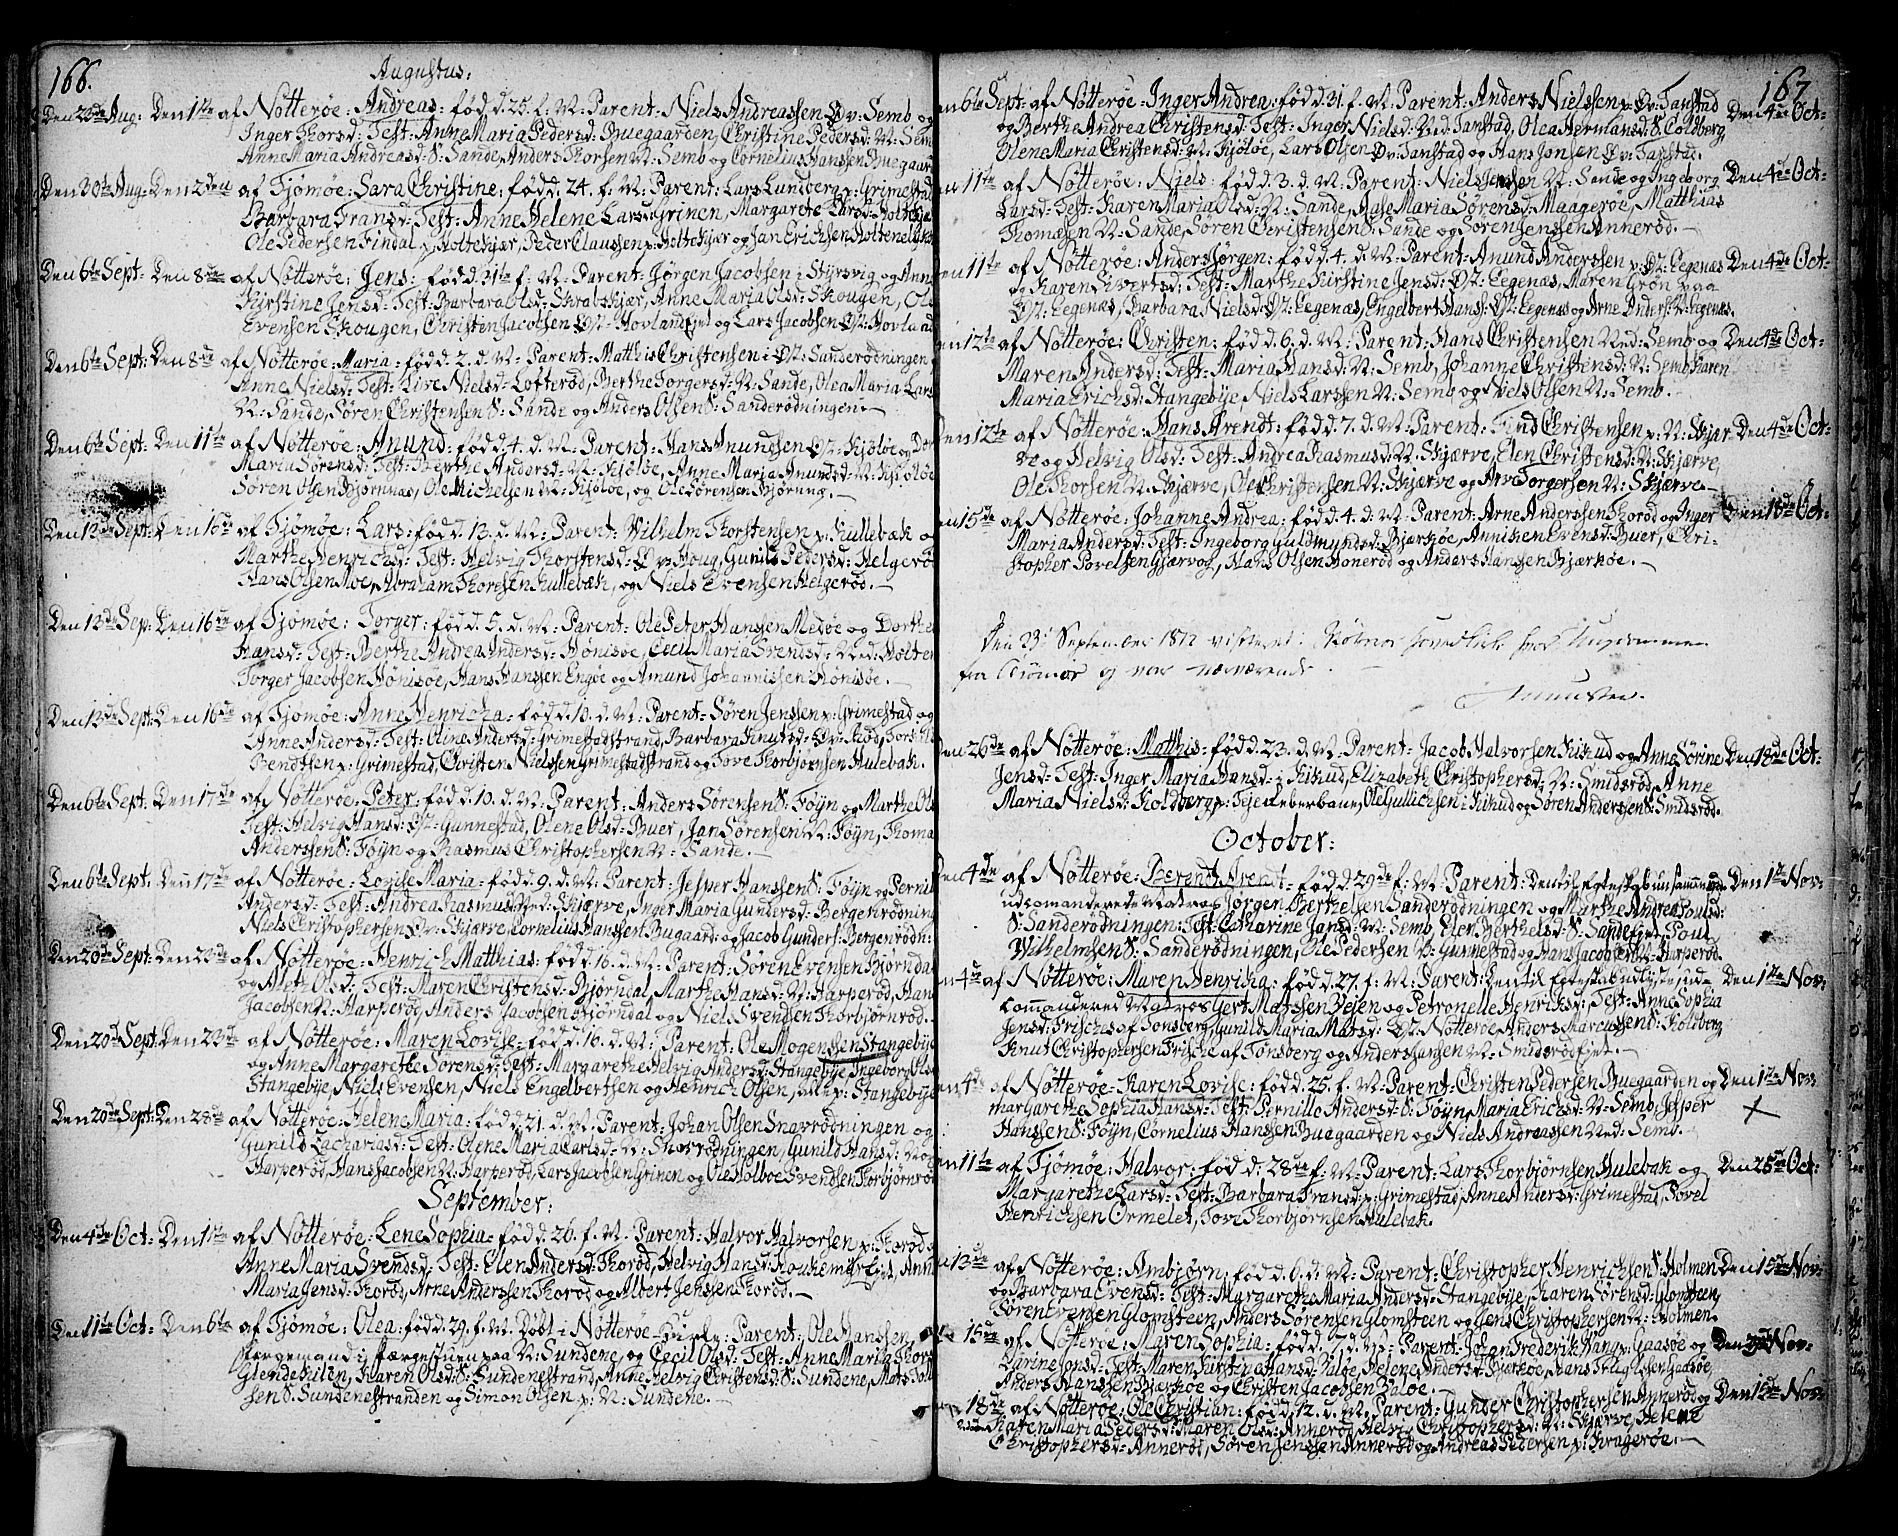 166.
Augustus:
Den 23de Aug: Den 1ste af Nötteröe: Andreas: född 25. f. M: Parent: Niels Andreassen Øv: Semb og
Inger Thorsd: Test: Anne Maria Pedersd: Buegaarden, Christine Pedersd: N: Semb
Anne Maria Andreasd: S: Sande, Anders Thorsen N: Semb og Cornelius Hanssen Buegaard
Den 30te Aug: Den 2den af Tjömöe: Sara Christine: född 24. f. M: Parent: Lars Lundberg p: Grimestad
Barbara Fransd: Test: Anne Helene Larsd: Grinen, Margarete Larsd: Holtekjær
Ole Pedersen Findal p: Holtekjær, Peder Claussen p: Holtekjær og Jan Erichsen Holtene
Den 6te Sept: Den 8de af Nötteröe: Jens: född 31te f: M: Parent: Jörgen Jacobsen i Styrsvig og Anne
Kirstine Jensd: Test: Barbara Olsd: Skrabskjær, Anne Maria Olsd: Skougen, Ole
Evensen Skougen, Christen Jacobsen Øst: Hovland Ejed og Lars Jacobsen Øst: Hovland
Den 6te Sept: Den 8de af Nötteröe: Maria: född 2. d. M: Parent: Matthis Christensen i Øst: Sanderödningen
Anne Nielsd: Test: Live Nielsd: Lofteröd, Berthe Torgersd: N: Sande, Olea Maria Lars
N: Sande, Sören Christensen S: Sande og Anders Olsen S: Sanderödningen.
Den 6te Sept: Den 11te af Nötteröe: Anund: född 4. d. M: Parent: Hans Anundsen Øst: Kjölöe og Dor
Maria Sörensd: Test: Berthe Andersd: N: Kjölöe, Anne Maria Anundsd: N: Kjölöe
Sören Olsen Björnnæs, Ole Michelsen N: Kjölöe, og Ole Sörensen Björning.
Den 13de Sept: Den 15de af Tjömöe: Lars: född 13. d. M: Parent: Wilhelm Thorstensen p: Kullebæk o
Marthe Henrichsd: Test: Helvig Thorstensd: Øv: Houg, Gunild Pedersd: Helgerö
Hans Olsen Moe, Abraham Thoresen Kullebæk, og Niels Evensen Helgeröd.
Den 13de Sep: Den 16de af Tjömöe: Torger: född 5. d. M: Parent: Ole Peter Hanssen Medöe og Dorthe
Hansd: Test: Berthe Andrea Andersd: Hönisöe, Cecil Maria Svendsd: Ned: Holten
Torger Jacobsen Hönisöe, Hans Hanssen Engöe og Amund Johannissen Hönisöe.
Den 13de Sept: Den 16de af Tjömöe: Anne Henricha: född 10. d. M: Parent: Sören Jenssen p: Grimestad og
Anne Andersd: Test: Oline Andersd: Grimestadstrand, Barbara Knutsd: Øv: Röd, Tors
Bendtsen p: Grimestad, Christen Nielssen Grimestadstrand og Tove Thorbjörnsen Hulebak.
Den 6te Sept: Den 17de af Nötteröe: Peter: född 10. d. M: Parent: Anders Sörensen S: Föyn og Marthe Ols
Test: Helvig Hansd: Øst: Gunnestad, Olene Olsd: Buer, Jan Sörensen N: Föyn, Thoma
Anderssen S: Föyn og Rasmus Christophersen N: Sande.
Den 6te Sept: Den 17de af Nötteröe: Lovise Maria: född 9. d. M: Parent: Jesper Hanssen S: Föyn og Pernill
Andersd: Test: Andrea Rasmusd: Ned: Skjærve, Inger Maria Gundersd: Bergenrödning
Niels Christophersen Øv: Skjærve, Cornelius Hanssen Bugaard: og Jacob Gunders: Bergenrödn:
Den 20de Sept: Den 22de af Nötteröe: Henrich Matthias: född 16. d. M: Parent: Sören Evensen Björndal
og Aleth Olsd: Test: Maren Christensd: Björndal, Marthe Hansd: N: Harperöd, Hans
Jacobsen N: Harperöd, Anders Jacobsen Björndal og Niels Svendsen Thorbjörnröd.
Den 20de Sept: Den 23de af Nötteröe: Maren Lovise: född 16. d. M: Parent: Ole Mogenssen Stangebye
og Anne Margarethe Sörensd: Test: Margarethe Helvig Andersd: Stangebye, Ingeborg Olsd
Stangebye, Niels Evensen, Niels Engelbertsen og Henrich Olsen, alle p: Stangebye
Den 20de Sept: Den 28de af Nötteröe: Helene Maria: född 21. d. M: Parent: Johan Olsen Snavrödningen og
Gunild Zachariasd: Test: Olene Maria Carlsd: N: Snavrödningen, Gunild Hansd: N:
Harperöd, Hans Jacobsen N: Harperöd, Lars Jacobsen Grinen og Ole Holboe Svendsen Thorbjörnröd
September:
Den 4de Oct: Den 1ste af Nötteröe: Lene Sophia: född 26. f. M: Parent: Halvor Halvorsen p: Thoröd
Anne Maria Svendsd: Test: Elen Andersd: Thoröd, Helvig Hansd: Boukemyr Ejet, Anne
Maria Jensd: Thoröd, Arne Anderssen Thoröd og Albert Jenssen Thoröd.
Den 11te Oct: Den 6te af Tjömöe: Olea: född 29. f. M. Döbt i Nötteröe-Kirke: Parent: Ole Hanssen,
Færgemand i Færgestuen paa N: Sundene, og Cecil Olsd: Test: Anne Maria Thors
Glendehiten, Karen Olsd: S: Sundenestrand, Anne Helvig Christensd: S: Sundene, Mats
sen S: Sundenestranden og Simon Olsen p: N: Sundene.
167
6te Sept: af Nötteröe: Inger Andrea: född 31. f. M: Parent: Anders Nielssen p: Øv: Tanstad Den 4de Oct:
og Berthe Andrea Christensd: Test: Inger Nielsd: Ned: Tanstad, Olea Hermansd: S: Coldberg
Olene Maria Christensd: N: Kjölöe, Lars Olsen Øv: Tanstad og Hans Jonsen Øv: Tanstad.
11te af Nötteröe: Niels: född 3. d. M: Parent: Niels Jenssen N: Sande og Ingeborg Den 4de Oct:
Larsd: Test: Karen Maria Olsd: N: Sande, Aase Maria Sörensd: Maageröe, Matthias
Thomæsen N: Sande, Sören Christensen S: Sande og Sören Jenssen Anneröd.
11te af Nötteröe: Anders Jörgen: född 4. d. M: Parent: Anund Anderssen p: Øst: Eegenæs Den 4de Oct:
og Karen Evertsd: Test: Marthe Kirstine Jensd: Øst: Eegenæs, Maren Grön paa
Øst: Eegenæs, Barbara Nielsd: Øst: Eegenæs, Engelbert Hanss: Øst: Eegenæs og Arne Anders: N: Eegenæs.
12te af Nötteröe: Christen: född 6. d. M: Parent: Hans Christensen Ned: Semb og Den 4de Oct:
Maren Andersd: Test: Maria Hansd: N: Semb, Johanne Christensd: N: Semb, Karen
Maria Erichsd: Stangebye, Niels Larssen N: Semb og Niels Olsen N: Semb.
Den 12te af Nötteröe: Hans Arendt: född 7. d. M: Parent: Find Christensen p: N: Skjær Den 4de Oct:
ve og Helvig Olsd: Test: Andrea Rasmusd: N: Skjærve, Elen Christensd: N: Skjærve,
Ole Thorsen N: Skjærve, Ole Christensen N: Skjærve og Arve Torgersen N: Skjærve.
15de af Nötteröe: Johanne Andrea: född 4. d. M: Parent: Arne Anderssen Thoröd og Inger Den 18de Oct:
Maria Andersd: Test: Ingeborg Guldmundsd: Bjærköe, Anniken Evensd: Buer, Chri-
stopher Povelsen Gjærvog, Hans Olsen Boneröd og Anders Hanssen Bjærköe.
Den 23de September 1812 visiteret
fra Tiömöe ej var nærværende.
Den 26de af Nötteröe: Matthis: född 23. d. M: Parent: Jacob Halvorsen Kikud og Anne Sörine Den 18de Oct:
Jensd: Test: Inger Maria Hansd: i Kikud, Elizabeth Christophersd: N: Smidsröd, Anne
Maria Nielsd: Koldberg p: Teje Leberbane, Ole Gullichsen i Kikud og Sören Anderssen S: Smidsröd.
October:
4de af Nötteröe: Berendt Arendt: född 29de f: M: Parent: Den til Egteskab unsammende Den 1ste Nov:
udcomanderede Matros Jörgen Berthelsen Sanderödningen og Marthe Andrea Poulsd:
S: Sanderödningen: Test: Catharine Jansd: N: Semb, Elen Berthelsd: S: Sande Ejet, Poul
Wilhelmsen S: Sanderödningen, Ole Pedersen V: Gunnestad og Hans Jacobsen N: Harperöd.
4de af Nötteröe: Maren Henrika: född 27. f: M: Parent: Den til Egteskab udlyste ud- Den 1ste Nov:
commanderet Matros Gert Matssen Vejen og Petronelle Henriksd: Test: Anne Sophia
Jensd: Frisches af Tönsberg, Gunild Maria Matsd: Øst: Nötteröe Anders Marcussen S: Koldberg
Knut Christophersen Frische af Tönsberg og Anders Hansen N: Smidsröd Ejet.
4de af Nötteröe: Karen Lovise: född 25. f: M: Parent: Christen Pedersen Buegaarden og Den 1ste Nov:
margarethe Sophia Hansd: Test: Pernille Andersd: S: Föyn, Maria Erichsd: N: Semb, Jesper
Hanssen S: Föyn, Cornelius Hanssen Buegaarden og Niels Andreassen Ned: Semb.
11te af Tjömöe: Halvor: född d. 28de f: M: Parent: Lars Thorbjörnsen Hulebak og Den 25de Oct:
Margarethe Larsd: Test: Barbara Fransd: p: Grimestad, Anne Andersd: Grimestad, Povel
Henrichsen Ormelet, Tove Thorbjörnsen Hulebak.
13de af Nötteröe: Ambjörn: född 6. d. M: Parent: Christopher Henrichsen S: Holmen Den 15de Nov:
og Barbara Evensd: Test: Margarethe Maria Andersd: Stangebye, Karen Sörensd: Glomsteen,
Sören Evensen Glomsteen, Anders Sörensen Glomsteen og Jens Christophersen N: Holmen.
15de af Nötteröe: Maren Sophia: född 7. d. M: Parent: Johan Frederik Hang p: Gaasöe og Den Nov:
Karine Jonsd: Test: Maren Kirstina Hansd: Valöe, Helene Andersd: Bjerköe, Hans Truglssen Gaasöe,
Anders Hanssen Bjerköe og Christen Jacobsen Valöe.
18de af Nötteröe: Ole Christian: född 12. d. M: Parent: Gunder Christophersen Anneröd og Den 15de Nov:
Karen Maria Pedersd: Maren Olsd: Anneröd, Helvig Christophersd: N: Skjærve, Helene
Christophersd: Anneröd, Sören Jenssen Anneröd og Andreas Pedersen p: Krageröe.